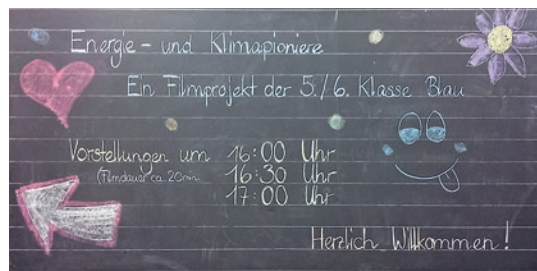 Energie- und Klimapioniere
Ein Filmprojekt der 5./6. Klasse Blau
Vorstellungen um 16:00 Uhr
(Filmdauer ca. 20min. 16:30 Uhr
17:00 Uhr
Herzlich Willkommen!